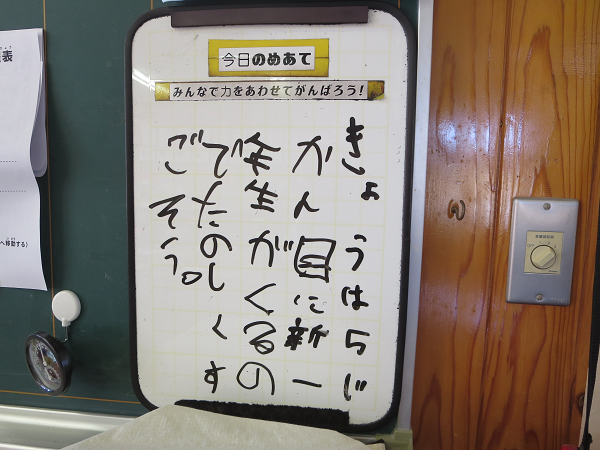 今日のめあて
みんなで力をあわせてがんばろう!
きょうは5じ
かん目に新一
年生がくるの
でたのしくす
ごそう。
表
へ移動する)